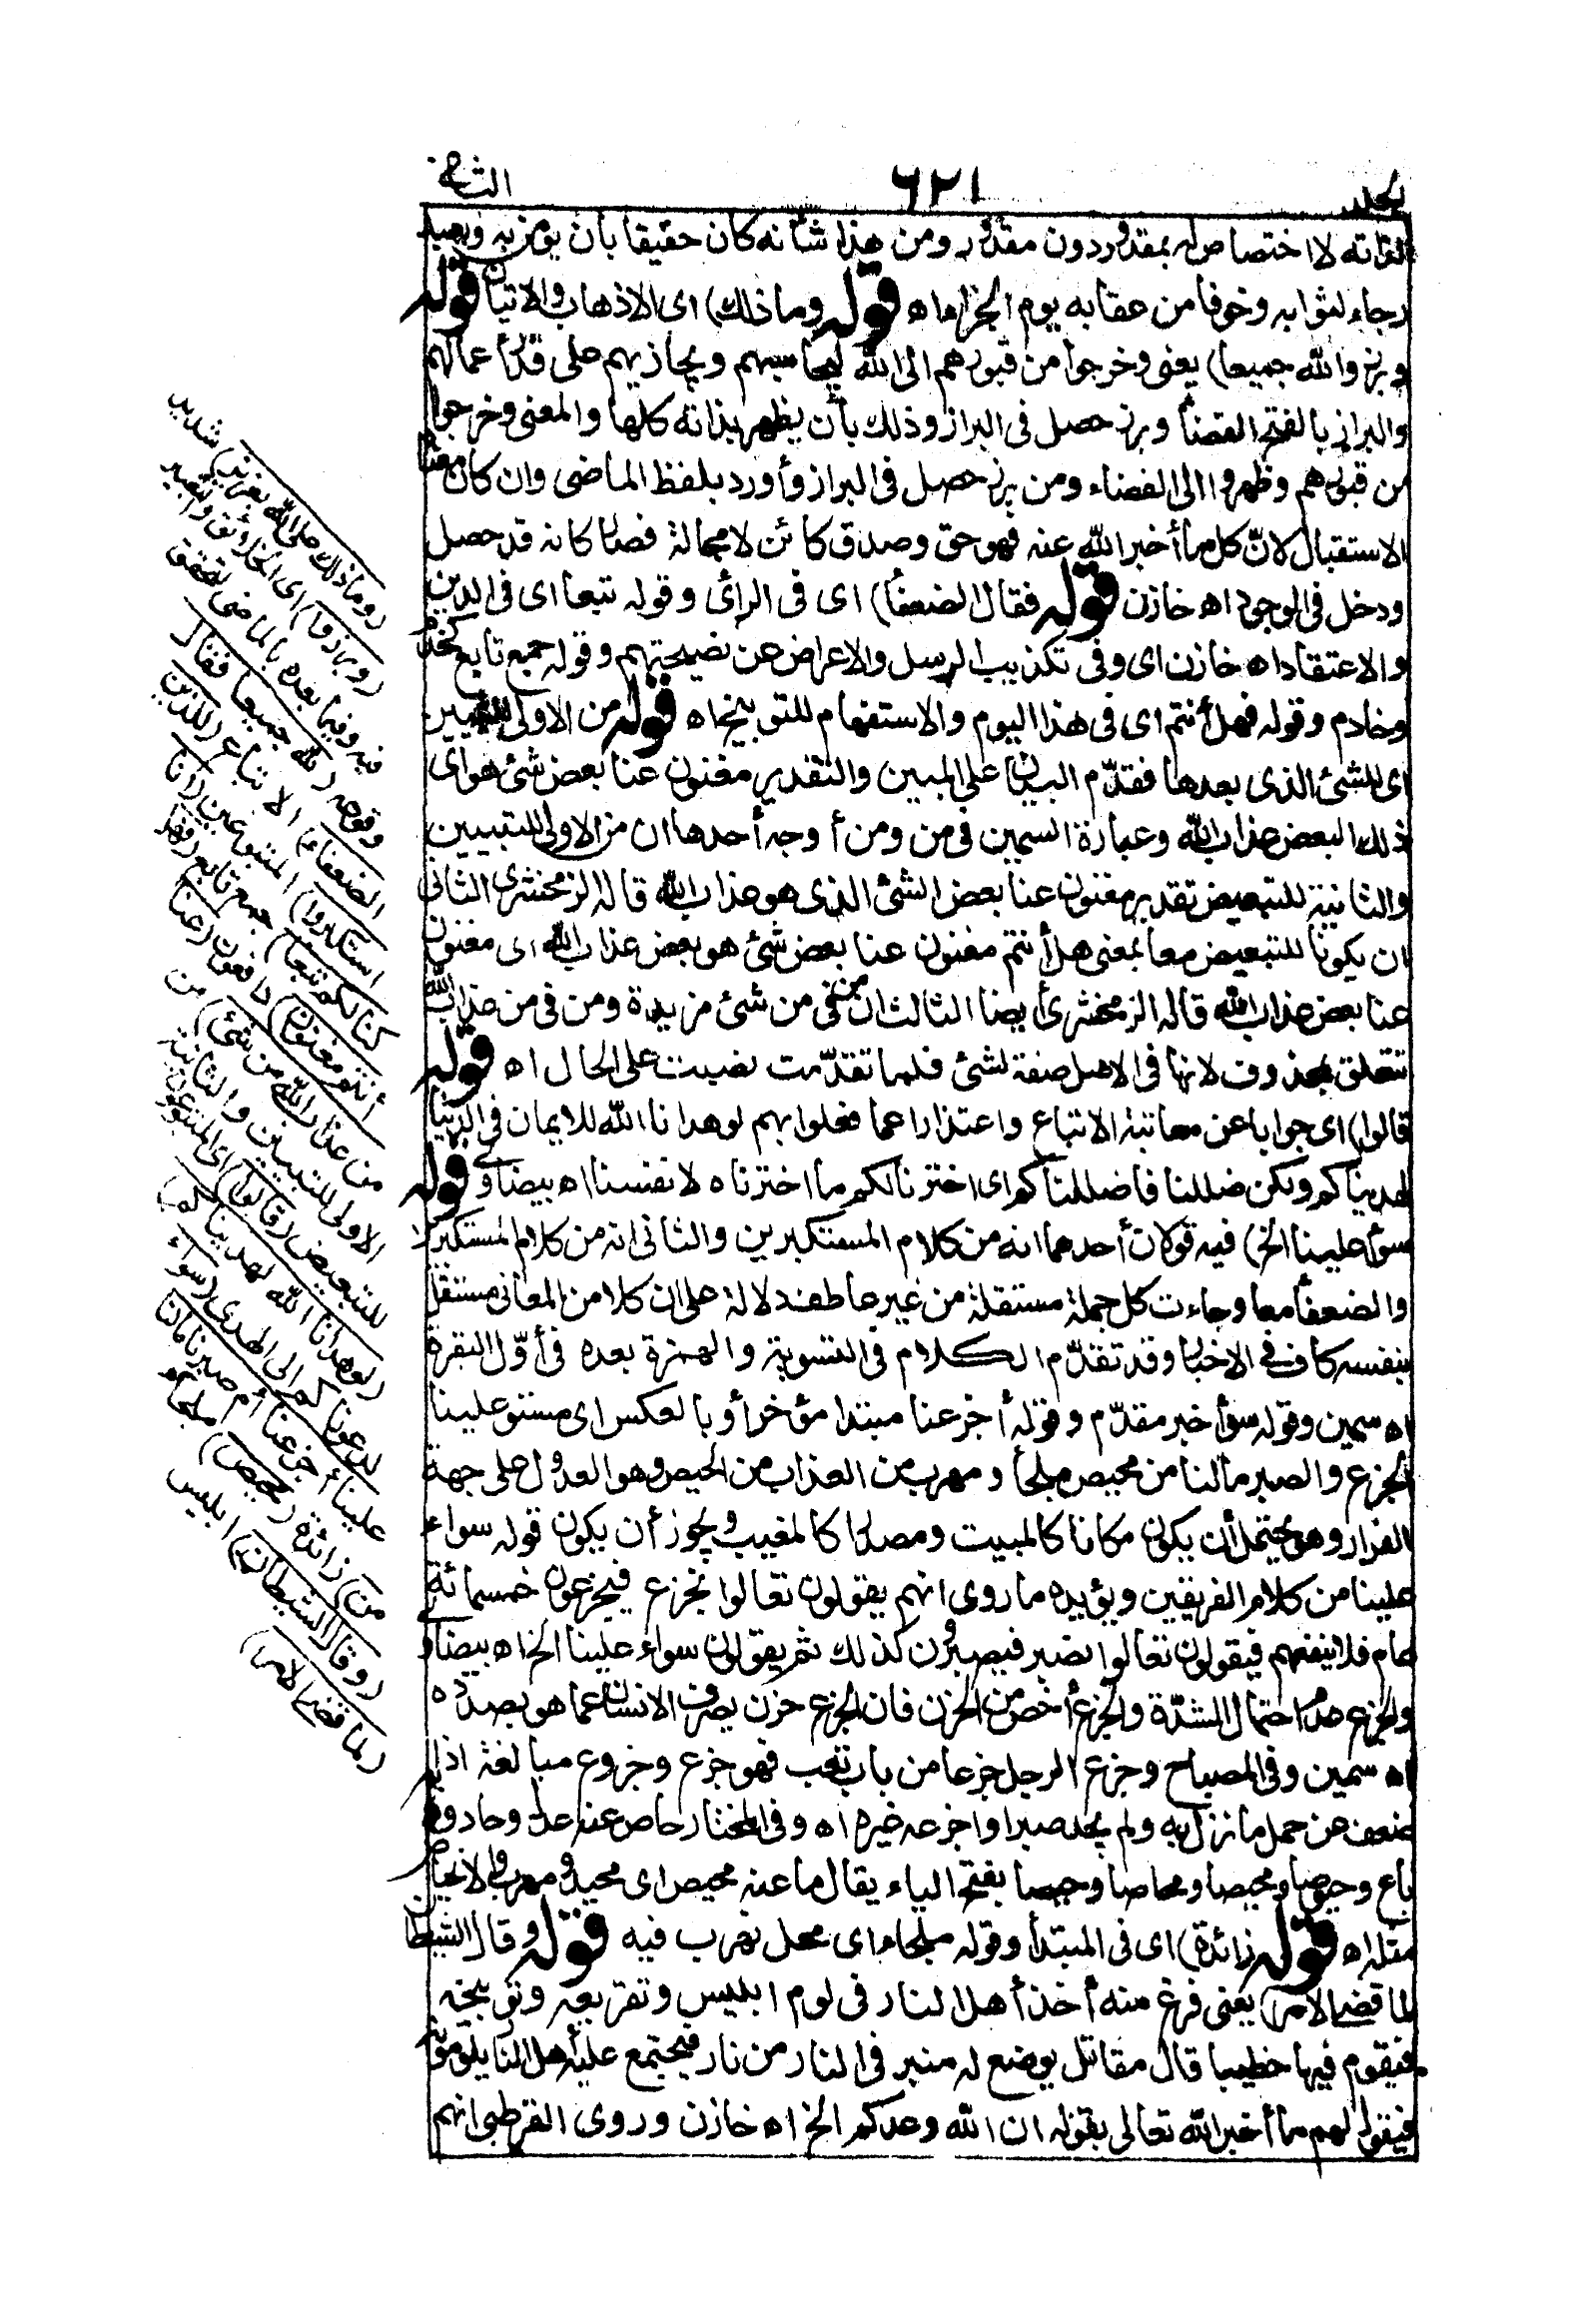 الجلد ٦٢١ الثانى
لذاته لا اختصاص له بمقدور دون مقدور ومن هذا شأنه كان حقيقا بأن يؤمن به ويعبد
رجاء لثوابه وخوفا من عقابه يوم الجزاء اه قوله وما ذلك) اى الاذهاب والاتيان قوله
وبرزوا لله جميعا) يعنى وخرجوا من قبورهم الى الله ليحاسبهم ويجازيهم على قدر أعمالهم
والبراز بالفتح الفضاء وبرز حصل فى البراز وذلك بأن يظهر بذاته كلها والمعنى وخرجوا
من قبورهم وظهروا الى الفضاء ومن برز حصل فى البراز وأورد بلفظ الماضى وان كان معناه
الاستقبال لانّ كل ما أخبر الله عنه فهو حق وصدق كائن لا محالة فصار كانه قد حصل
ودخل فى الوجود اه خازن قوله فقال الضعفاء) اى فى الرأى وقوله تبعا اى فى الدين
والاعتقاد اه خازن اى وفى تكذيب الرسل والاعراض عن نصيحتهم وقوله جمع تابع كخدم
وخادم وقوله فهل أنتم اى فى هذا اليوم والاستفهام للتوبيخ اه قوله من الاولى للتبيين
اى للشئ الذى بعدها فقدّم البيان على المبين والتقدير مغنون عنا بعض شئ هو اى
ذلك البعض عذاب الله وعبارة السمين فى من ومن أوجه أحدها ان من الاولى للتبيين
والثانية للتبعيض تقديره مغنون عنا بعض الشئ الذى هو عذاب الله قاله الزمخشرى الثانى
ان يكونا للتبعيض معا بمعنى هل أنتم مغنون عنا بعض شئ هو بعض عذاب الله اى مغنون
عنا بعض عذاب الله قاله الزمخشرى أيضا الثالث ان من فى من شئ مزيدة ومن فى من عذاب الله
تتعلق بمحذوف لانها فى الاصل صفة لشئ فلما تقدّمت نصبت على الحال اه قوله
قالوا) اى جوابا عن معاتبة الاتباع واعتذارا عما فعلوا بهم لو هدانا الله للايمان فى الدنيا
لهديناكم ولكن ضللنا فاضللناكم اى اخترنا لكم ما اخترناه لانفسنا اه بيضاوى قوله
سواء علينا الخ) فيه قولان أحدهما انه من كلام المستكبرين والثانى انه من كلام المستكبرين
والضعفاء معا وجاءت كل جملة مستقلة من غير عاطف دلالة على ان كلا من المعانى مستقل
بنفسه كاف فى الاخبار وقد تقدّم الكلام فى التسوية والهمزة بعده فى أوّل البقرة
اه سمين وقوله سواء خبر مقدّم وقوله أجزعنا مبتدا مؤخر أو بالعكس اى مستو علينا
الجزع والصبر مالنا من محيص ملجأ ومهرب من العذاب من الحيص وهو العدول على جهة
الفرار وهو يحتمل أن يكون مكانا كالمبيت ومصدرا كالمغيب ويجوز أن يكون قوله سواء
علينا من كلام الفريقين ويؤيده ما روى انهم يقولون تعالوا نجزع فيجزعون خمسمائة
عام فلا ينفعهم فيقولون تعالوا نصبر فيصبرون كذلك ثم يقولون سواء علينا الخ اه بيضاوى
والجزع عدم احتمال الشدّة والجزع أخص من الحزن فان الجزع حزن يصرف الانسان عما هو بصدده
اه سمين وفى المصباح وجزع الرجل جزعا من باب تعب فهو جزع وجزوع مبالغة اذا
ضعف عن حمل ما نزل به ولم يجد صبرا واجزعه غيره اه وفى المختار حاص عنه عدل وحاد وبابه
باع وحيوصا ومحيصا ومحاصا وحيصا بفتح الياء يقال ما عنه محيص اى محيد ومهرب والانحياص
مثله اه قوله زائدة) اى فى المبتدأ وقوله ملجاء اى محل نهرب فيه قوله وقال الشيطان
لما قضى الامر) يعنى فرغ منه أخذ أهل النار فى لوم ابليس وتقريعه وتوبيخه
فيقوم فيها خطيبا قال مقاتل يوضع له منبر فى النار من نار فيجتمع عليه أهل النار يلومونه
فيقول لهم ما أخبر الله تعالى بقوله ان الله وعدكم الخ اه خازن وروى القرطبى انهم
(وما ذلك على الله بعزيز) شديد
(وبرزوا) اى الخلائق والتعبير
فيه وفيما بعده بالماضى لتحقق
وقوعه (لله جميعا فقال
الضعفاء) الاتباع (للذين
استكبروا) المتبوعين (انا
كنا لكم تبعا) جمع تابع (فهل
أنتم مغنون) دافعون (عنا
من عذاب الله من شئ) من
الاولى للتبيين والثانية
للتبعيض (قالوا) اى المتبوعون
(لو هدانا الله لهديناكم)
لدعوناكم الى الهدى (سواء
علينا أجزعنا أم صبرنا مالنا
من) زائدة (محيص) ملجاء
(وقال الشيطان) ابليس
(لما قضى الامر)